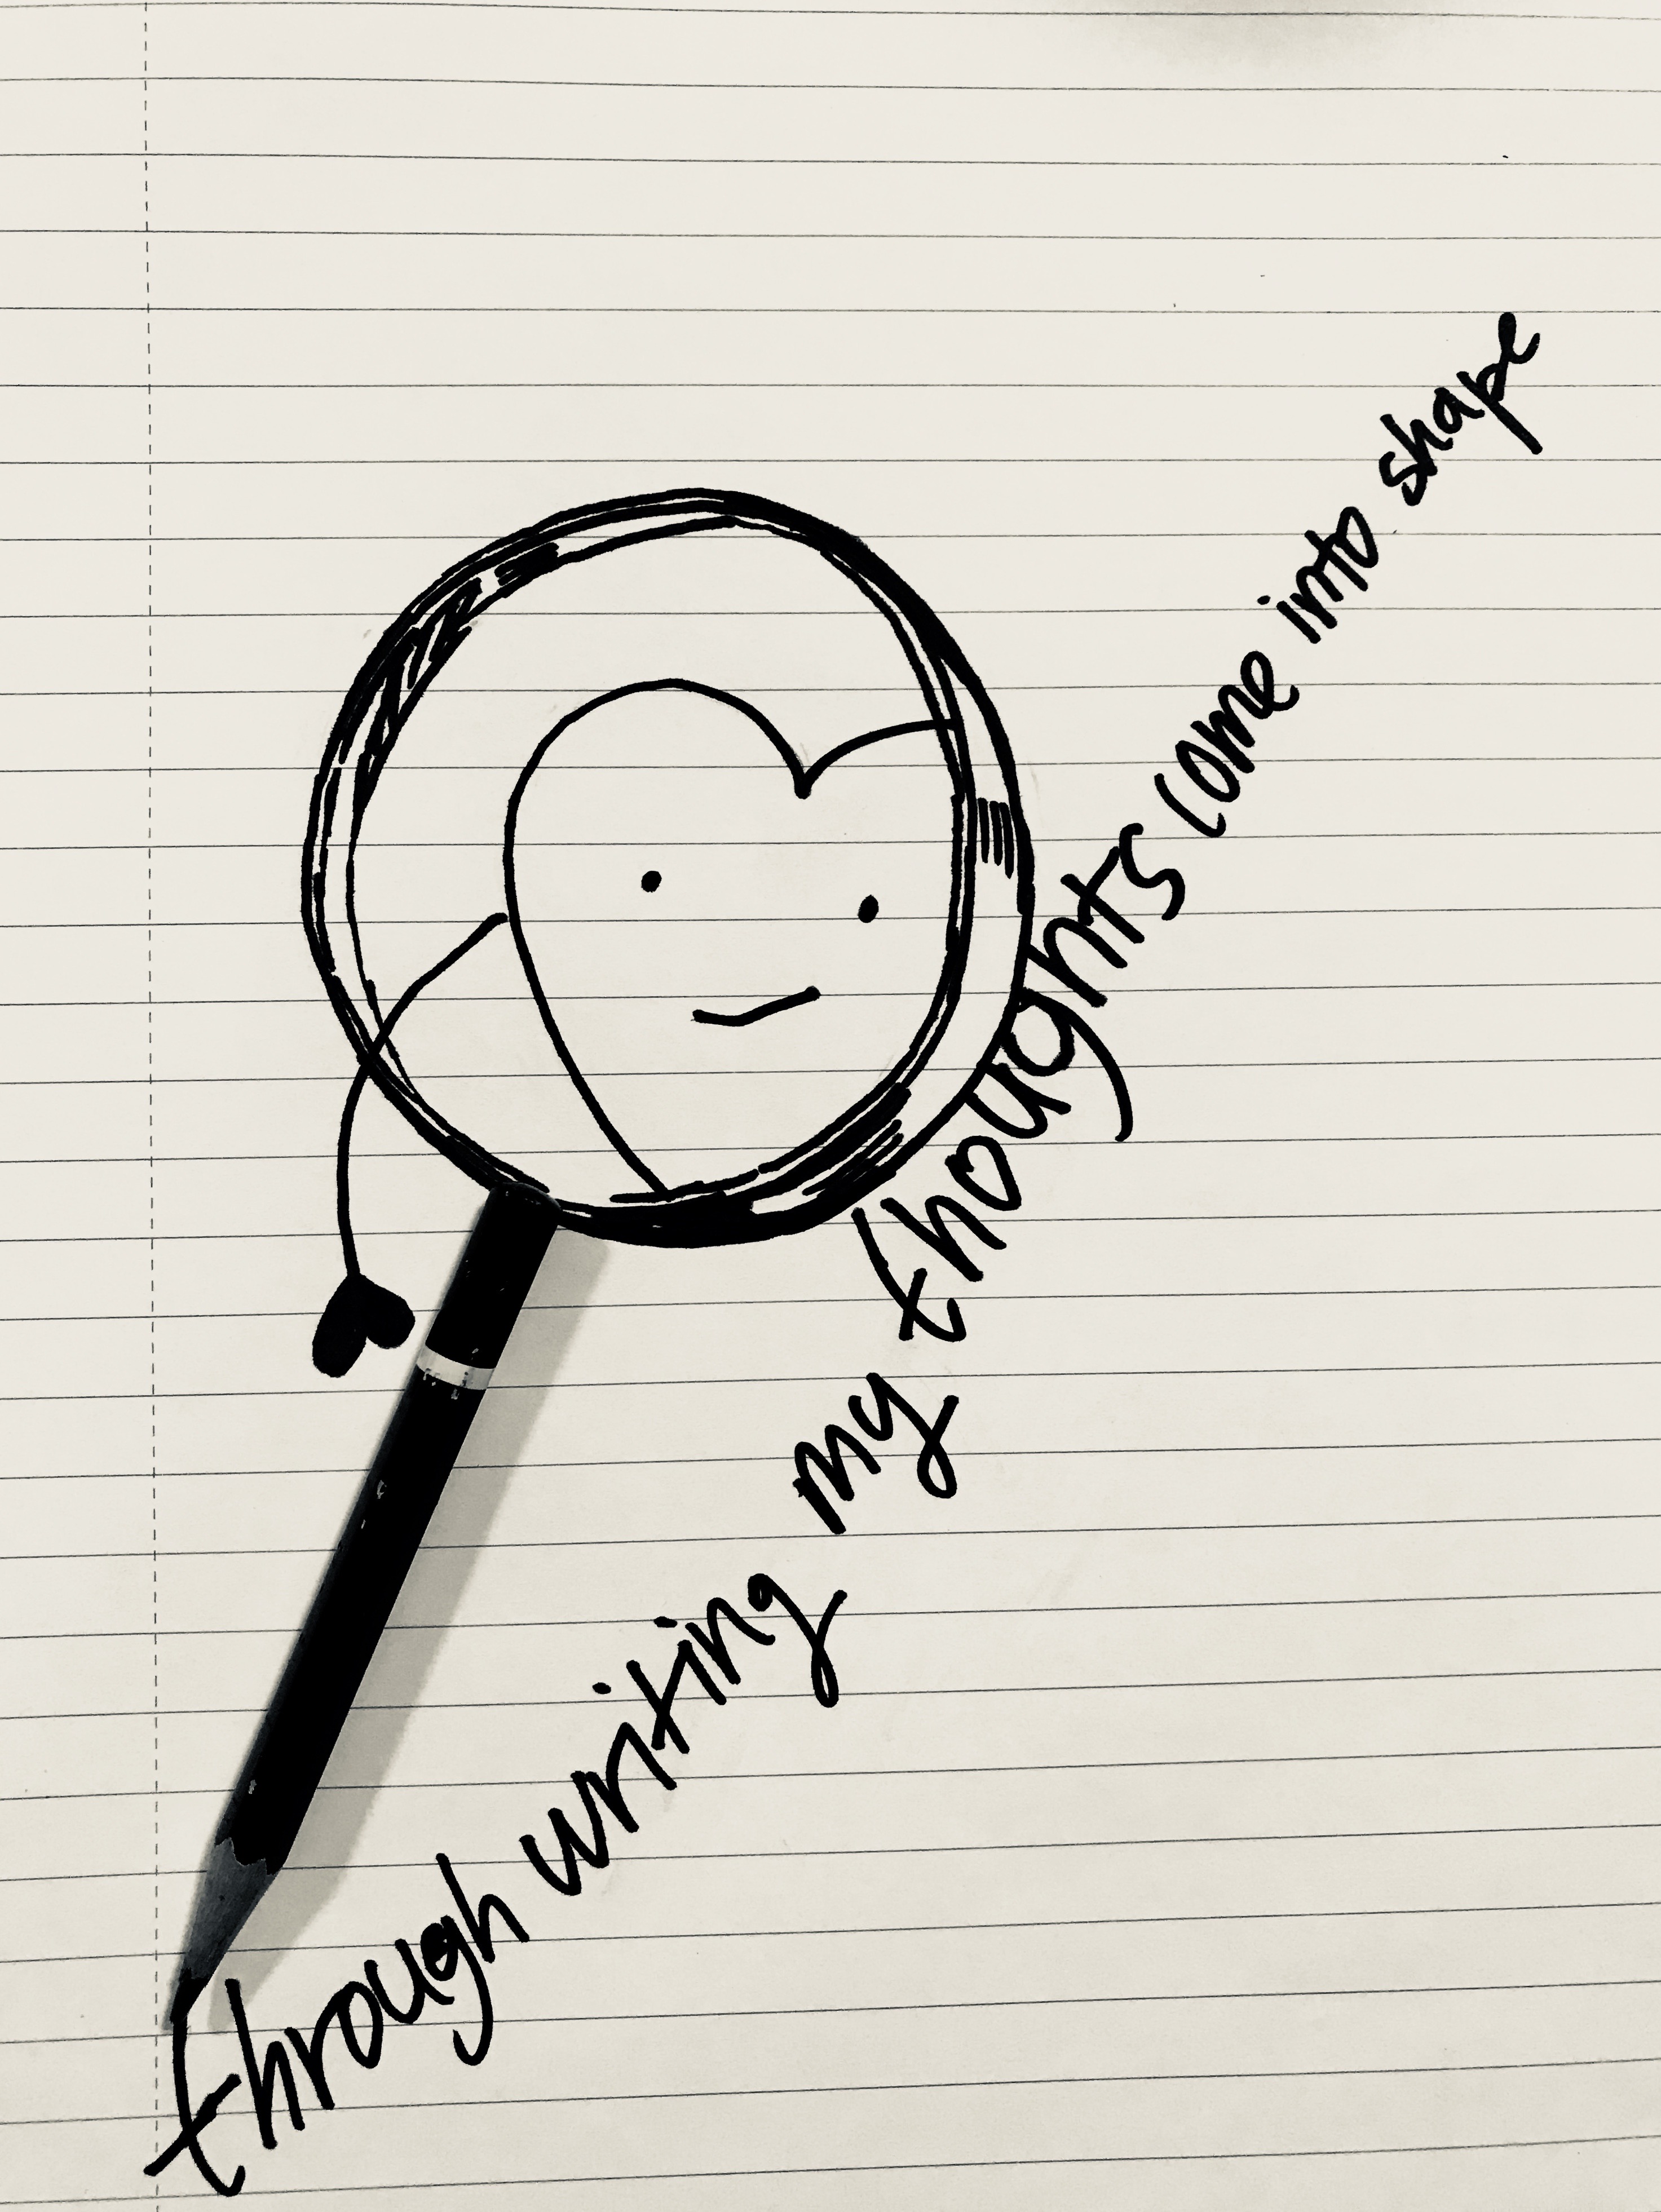 through writing my thoughts come into shape